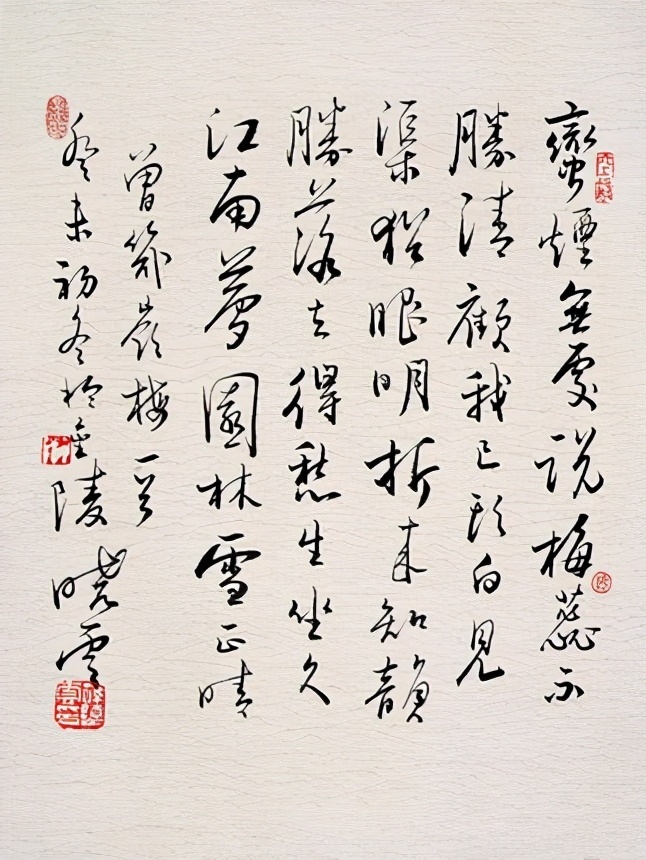 蠻煙無處説梅蕊不
勝清顧我已頭白見
渠猶眼明折来知韻
勝落去得愁生坐久
江南夢園林雪正晴
曾幾嶺梅一首
癸未初冬於金陵曉雲